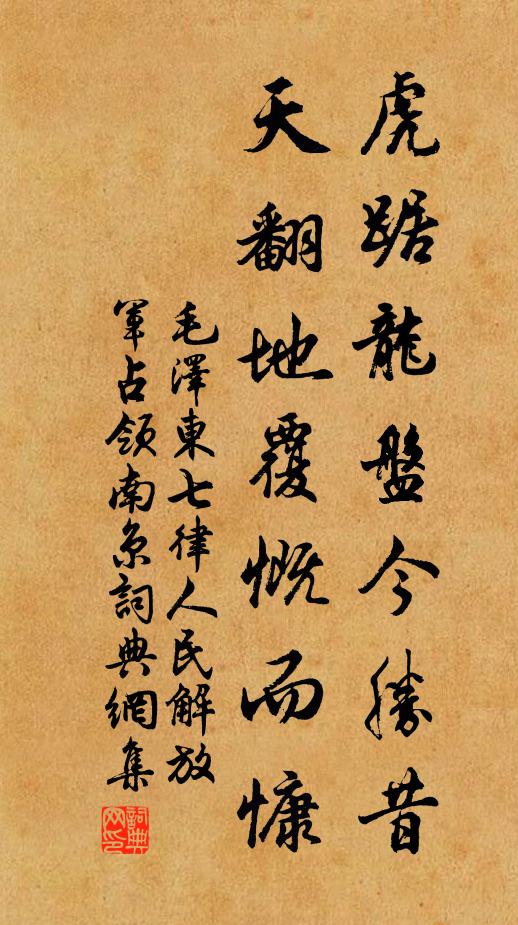 虎踞龍盤今勝昔
天翻地覆慨而慷
毛澤東七律人民解放
軍占領南京詞典網集
詞典网印